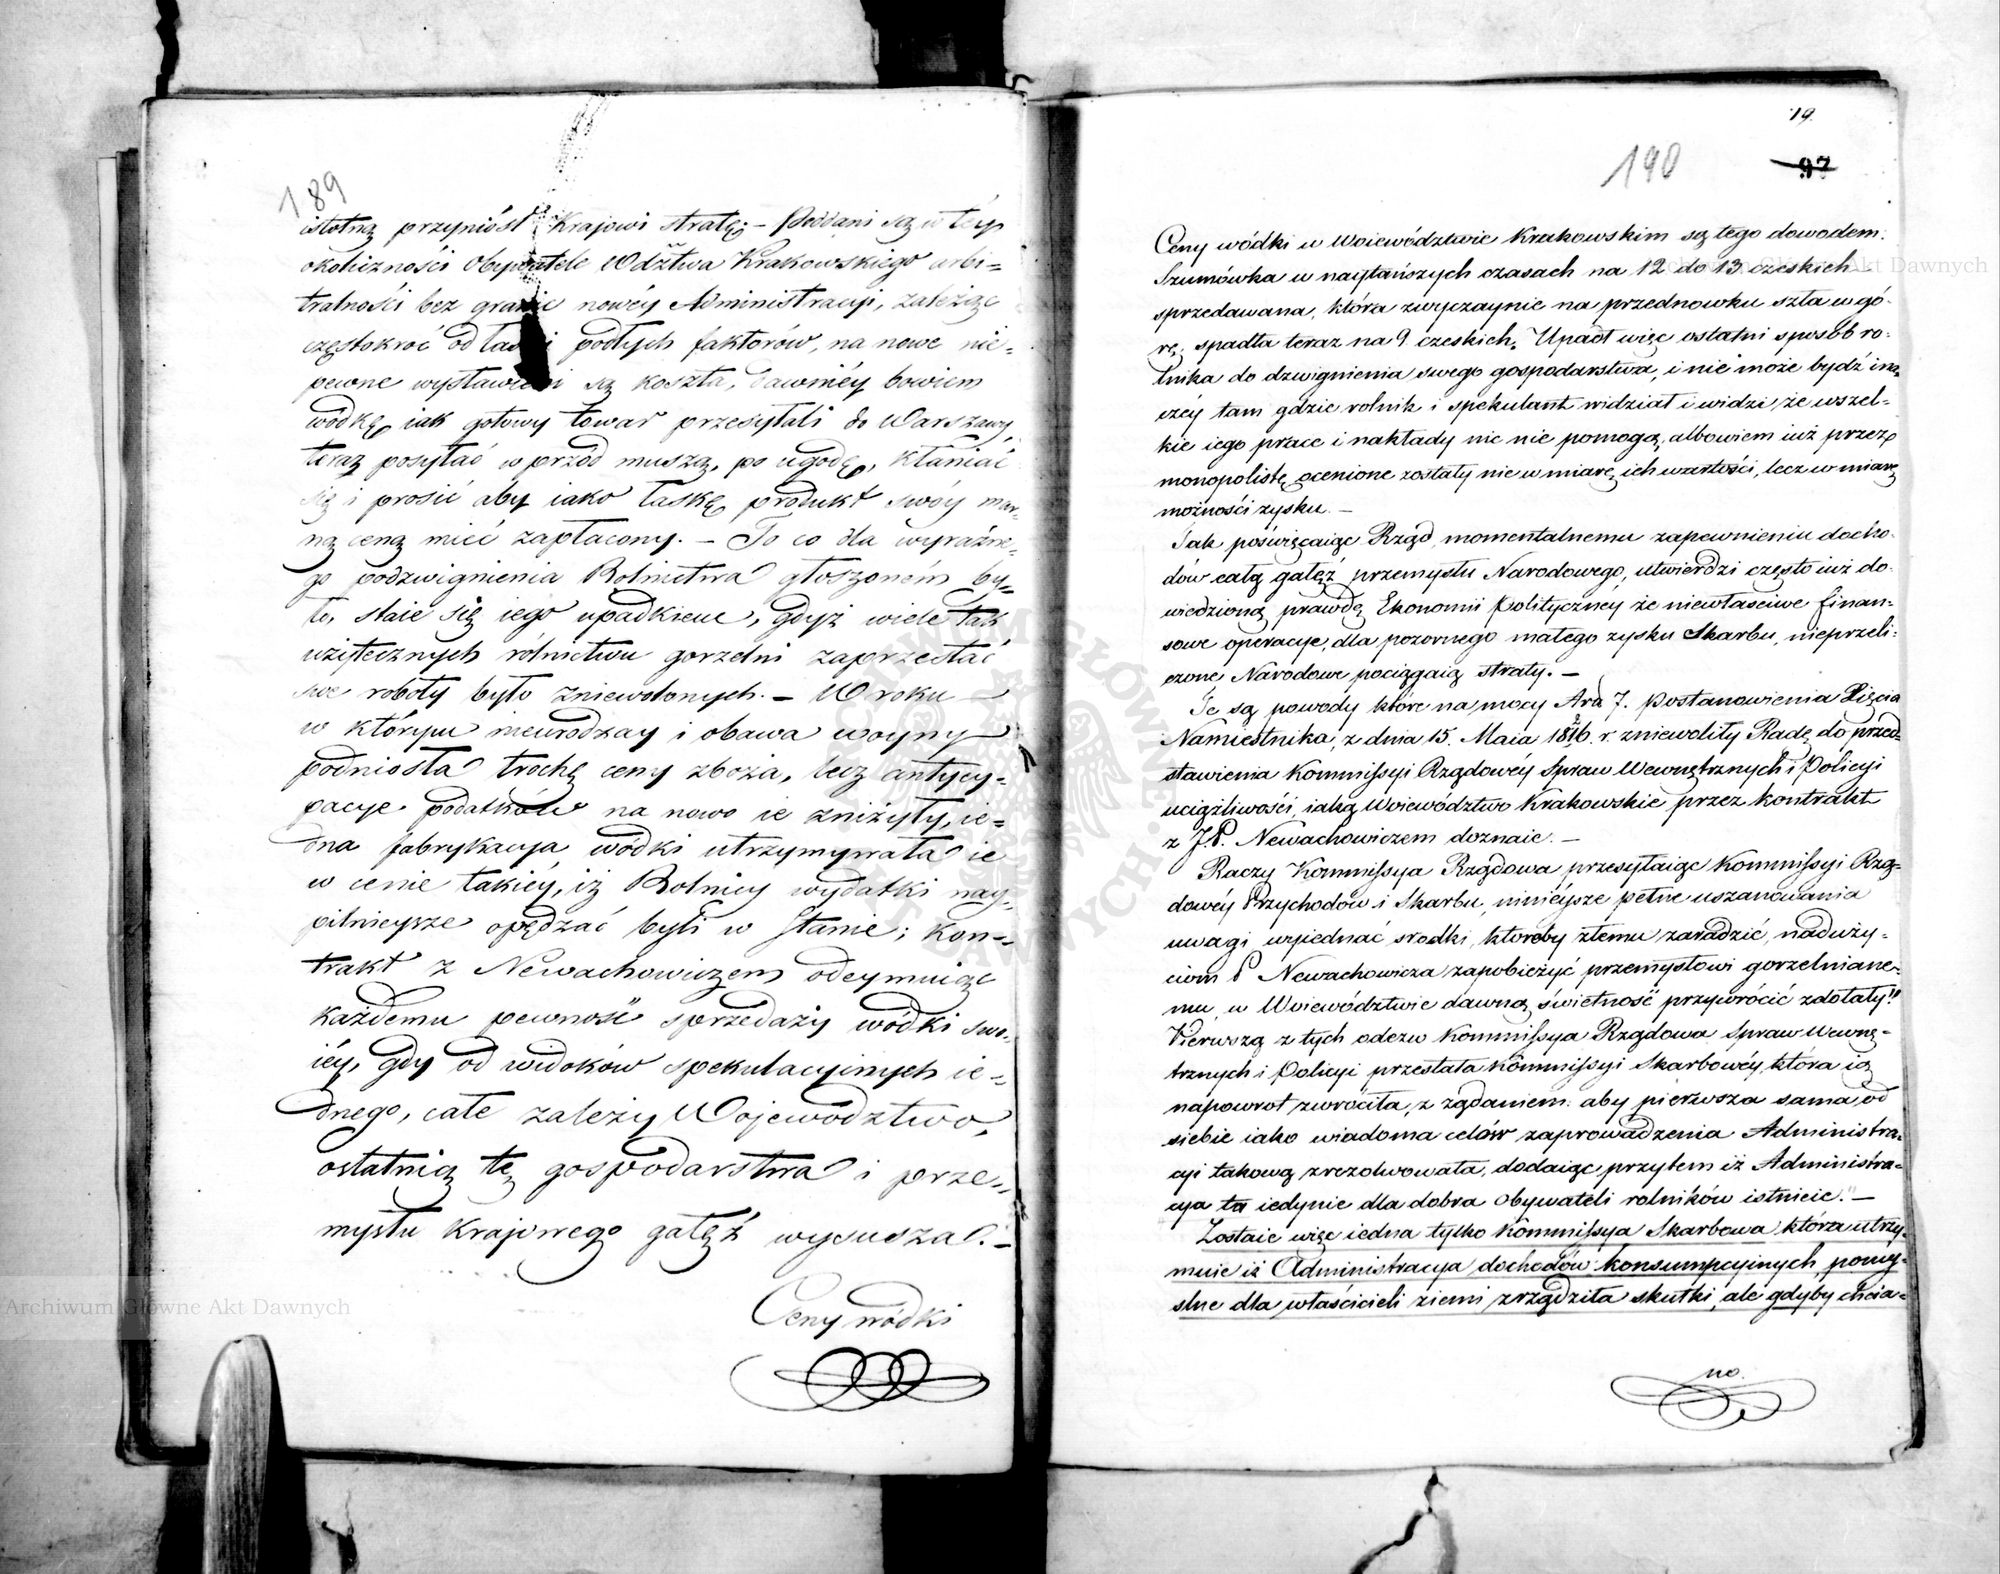 189
istotną przyniósł Krajowi stratę; – Poddani są w téy
okoliczności Obywatele Wdztwa Krakowskiego arbi=
tralności bez granic nowéy Administracyi, zależąc
częstokroć od łaski podłych faktorów, na nowe nie=
pewne wystawieni są koszta, dawniéy bowiem
wódkę iak gotowy towar przesyłali do Warszawy
teraz posyłać wprzód muszą, po ugodę, kłaniać
się i prosić aby iako łaskę produkt swóy mar=
ną ceną mieć zapłacony. – To co dla wyraźne=
go podzwignienia Rolnictwa głoszoném by=
ło, staie się iego upadkiem, gdyż wiele tak
użytecznych rólnictwu gorzelni zaprzestać
swe roboty było zniewolonych. – W roku –
w którym nieurodzay i obawa woyny
podniosła trochę ceny zboża, lecz antycy=
pacye podatków na nowo ie zniżyły, ie=
dna fabrykacya wódki utrzymywała ie
w cenie takiéy, iż Rolnicy wydatki nay=
pilnieysze opędzać byli w stanie; Kon=
trakt z Newachowiczem odeymuiąc
każdemu pewność sprzedaży wódki swo=
iéy, gdy od widoków spekulacyinych ie=
dnego, całe zależy Wojewodztwo,
ostatnią tę gospodarstwa i prze=
mysłu Krajowego gałęź wysusza. –
Ceny wódki
19.
190
97
Ceny wódki w Woiewództwie Krakowskim są tego dowodem.
Szumówka w naytańszych czasach na 12 do 13 czeskich
sprzedawana, która zwyczaynie na przednowku szła w gó=
rę, spadła teraz na 9 czeskich. Upadł więc ostatni sposób ro=
lnika do dzwignienia swego gospodarstwa, i nie może bydź ina=
czéy tam gdzie rolnik i spekulant widział i widzi, że wszel=
kie iego prace i nakłady nic nie pomogą, albowiem iuż przez
monopolistę ocenione zostały nie w miarę ich wartości, lecz w miarę
możności zysku. –
Tak poświęcaiąc Rząd, momentalnemu zapewnieniu docho=
dów całą gałęź przemysłu Narodowego, utwierdzi często iuż do=
wiedzioną prawdę Ekonomii Politycznéy że niewłaściwe finan=
sowe operacye, dla pozornego małego zysku Skarbu, nieprzeli=
czone Narodowe pociągaią straty. –
Te są powody które na mocy Art 7. Postanowienia Xięcia
Namiestnika, z dnia 15. Maia 1816. r. zniewoliły Radę do przed=
stawienia Kommissyi Rządowéy Spraw Wewnętrznych i Policyi
uciążliwości, iaką Woiewództwo Krakowskie przez kontrakt
z J.P. Newachowiczem doznaie. –
Raczy Kommissya Rządowa przesyłaiąc Kommissyi Rzą=
dowéy Przychodów i Skarbu, ninieysze pełne uszanowania
uwagi wyiednać srodki, któreby złemu zaradzić, naduży=
ciom P Newachowicza zapobieżyć przemysłowi gorzelniane=
mu w Woiewództwie dawną świetność przywrócić zdołały!"
Piérwszą z tych odezw Kommissya Rządowa Spraw Wewnę=
trznych i Policyi przesłała Kommissyi Skarbowéy, która ią
napowrot zwróciła, z żądaniem: aby pierwsza sama od
siebie iako wiadoma celów zaprowadzenia Administra=
cyi takową zrezolwowała, dodaiąc przytem iż Administra=
cya ta iedynie dla dobra Obywateli rolników istnieie." –
Zostaie więc iedna tylko Kommissya Skarbowa która utrzy=
muie iż Administracya dochodów konsumpcyinych, pomy=
slne dla właścicieli ziemi zrządziła skutki, ale gdyby chcia=
no.
Archiwum Główne Akt Dawnych
Archiwum Główne Akt Dawnych